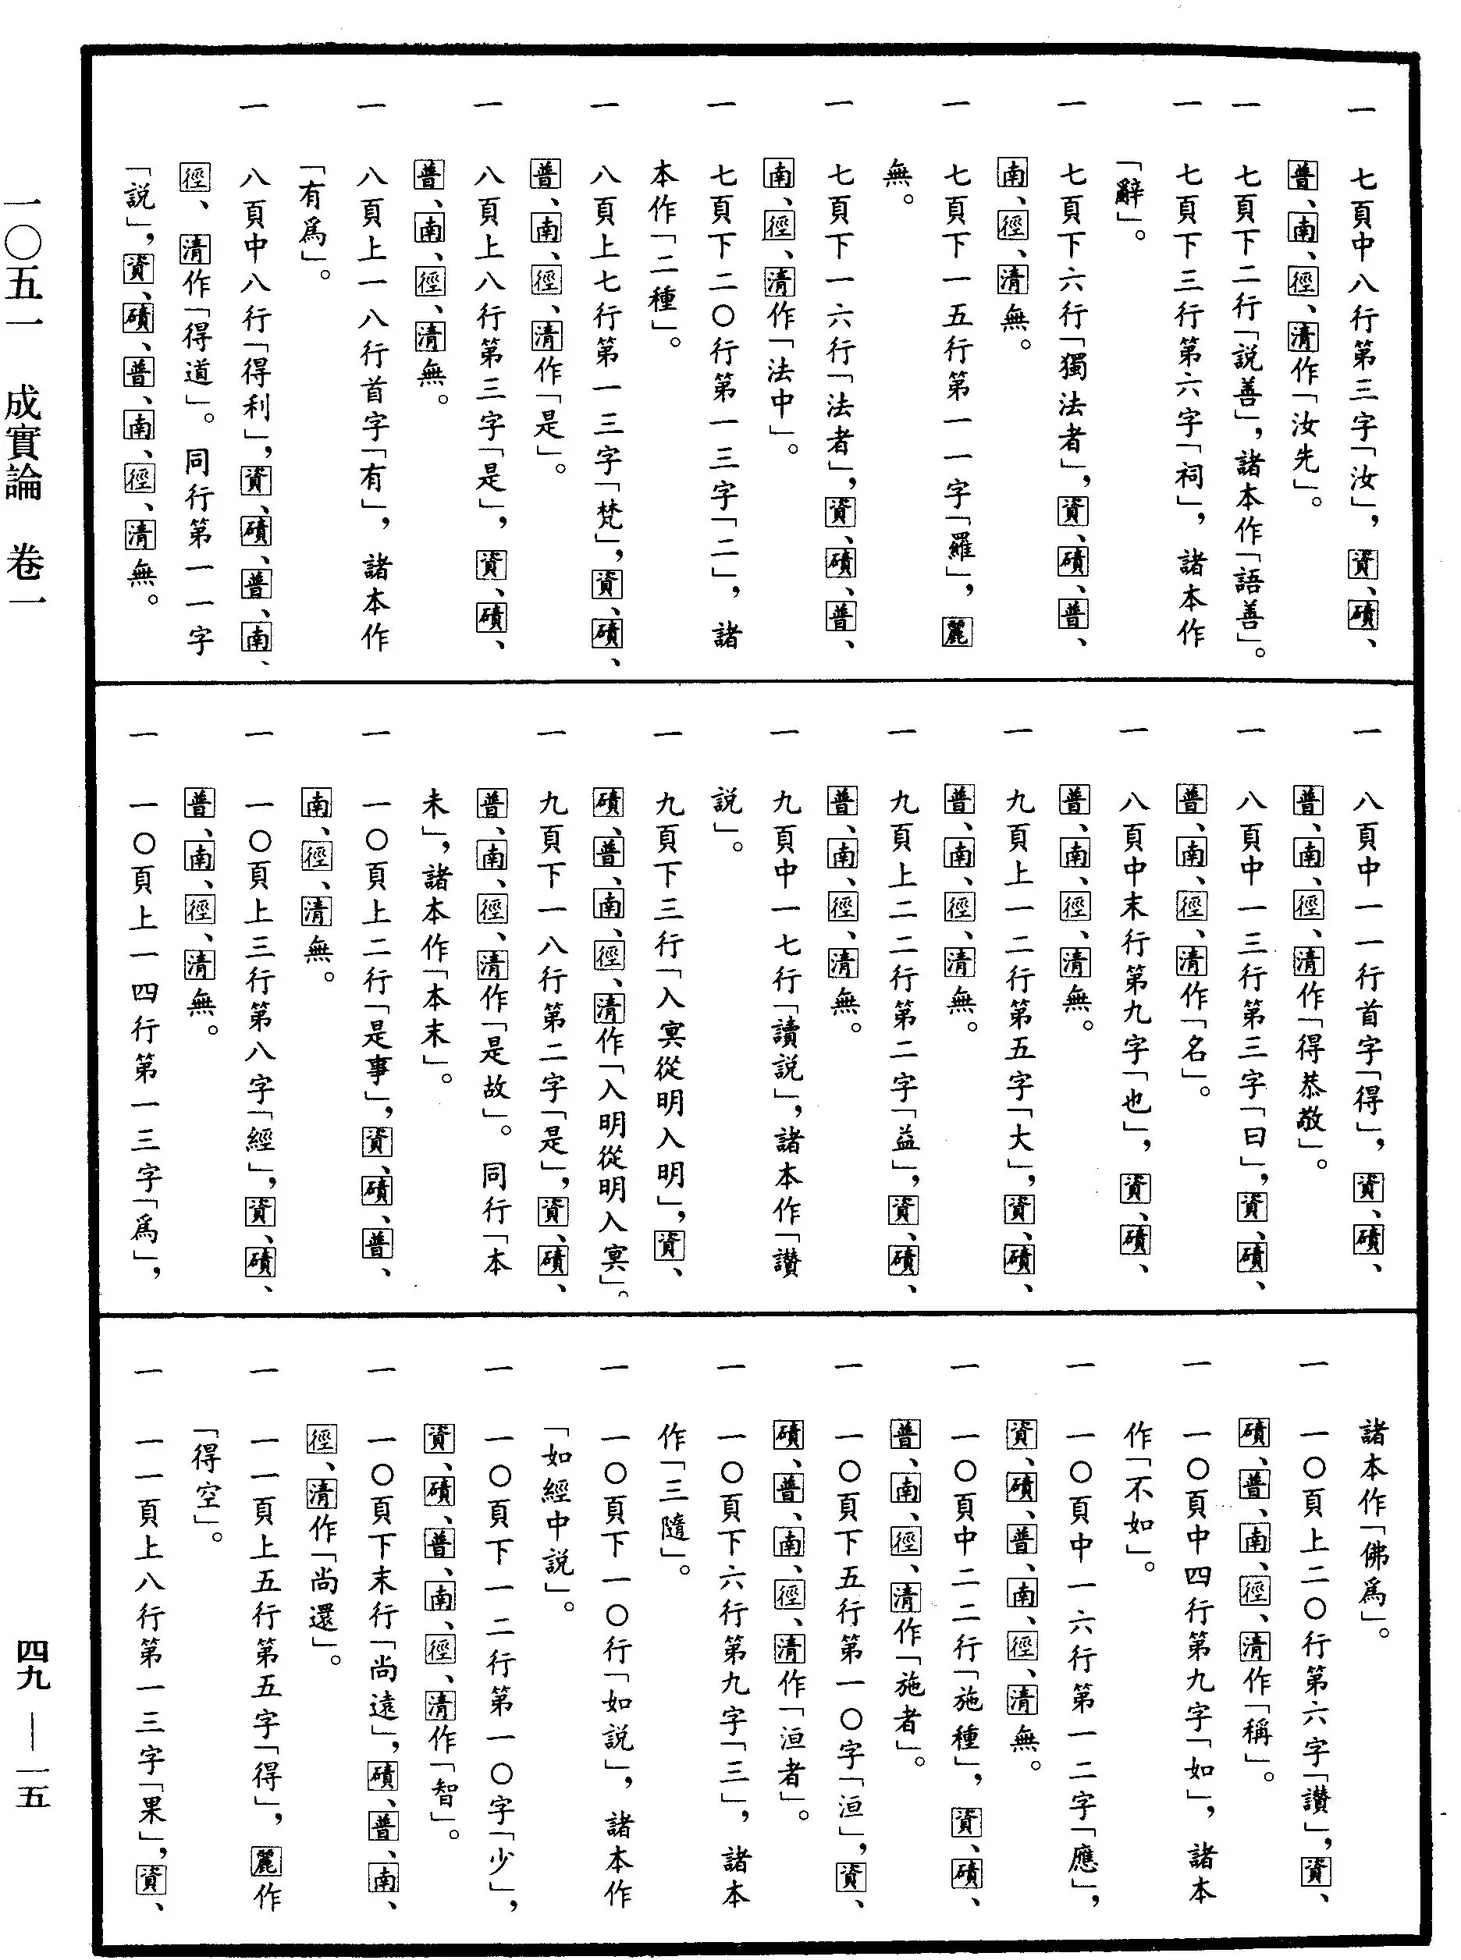 一　七頁中八行第三字「汝」，資、磧、
普、南、徑、清作「汝先」。
一　七頁下二行「説善」，諸本作「語善」。
一　七頁下三行第六字「祠」，諸本作
「辭」。
一　七頁下六行「獨法者」，資、磧、普、
南、徑、清無。
一　七頁下一五行第一一字「羅」，麗
無。
一　七頁下一六行「法者」，資、磧、普、
南、徑、清作「法中」。
一　七頁下二〇行第一三字「二」，諸
本作「二種」。
一　八頁上七行第一三字「梵」，資、磧、
普、南、徑、清作「是」。
一　八頁上八行第三字「是」，資、磧、
普、南、徑、清無。
一　八頁上一八行首字「有」，諸本作
「有爲」。
一　八頁中八行「得利」，資、磧、普、南、
徑、清作「得道」。同行第一一字
「説」，資、磧、普、南、徑、清無。
一　八頁中一一行首字「得」，資、磧、
普、南、徑、清作「得恭敬」。
一　八頁中一三行第三字「曰」，資、磧、
普、南、徑、清作「名」。
一　八頁中末行第九字「也」，資、磧、
普、南、徑、清無。
一　九頁上一二行第五字「大」，資、磧、
普、南、徑、清無。
一　九頁上二二行第二字「益」，資、磧、
普、南、徑、清無。
一　九頁中一七行「讀説」，諸本作「讚
説」。
一　九頁下三行「入冥從明入明」，資、
磧、普、南、徑、清作「入明從明入冥」。
一　九頁下一八行第二字「是」，資、磧、
普、南、徑、清作「是故」。同行「本
未」，諸本作「本末」。
一　一〇頁上二行「是事」，資、磧、普、
南、徑、清無。
一　一〇頁上三行第八字「經」，資、磧、
普、南、徑、清無。
一　一〇頁上一四行第一三字「爲」，
諸本作「佛爲」。
一　一〇頁上二〇行第六字「讚」，資、
磧、普、南、徑、清作「稱」。
一　一〇頁中四行第九字「如」，諸本
作「不如」。
一　一〇頁中一六行第一二字「應」，
資、磧、普、南、徑、清無。
一　一〇頁中二二行「施種」，資、磧、
普、南、徑、清作「施者」。
一　一〇頁下五行第一〇字「洹」，資、
磧、普、南、徑、清作「洹者」。
一　一〇頁下六行第九字「三」，諸本
作「三隨」。
一　一〇頁下一〇行「如説」，諸本作
「如經中説」。
一　一〇頁下一二行第一〇字「少」，
資、磧、普、南、徑、清作「智」。
一　一〇頁下末行「尚遠」，磧、普、南、
徑、清作「尚還」。
一　一一頁上五行第五字「得」，麗作
「得空」。
一　一一頁上八行第一三字「果」，資、
一〇五一　成實論　卷一
四九 — 一五